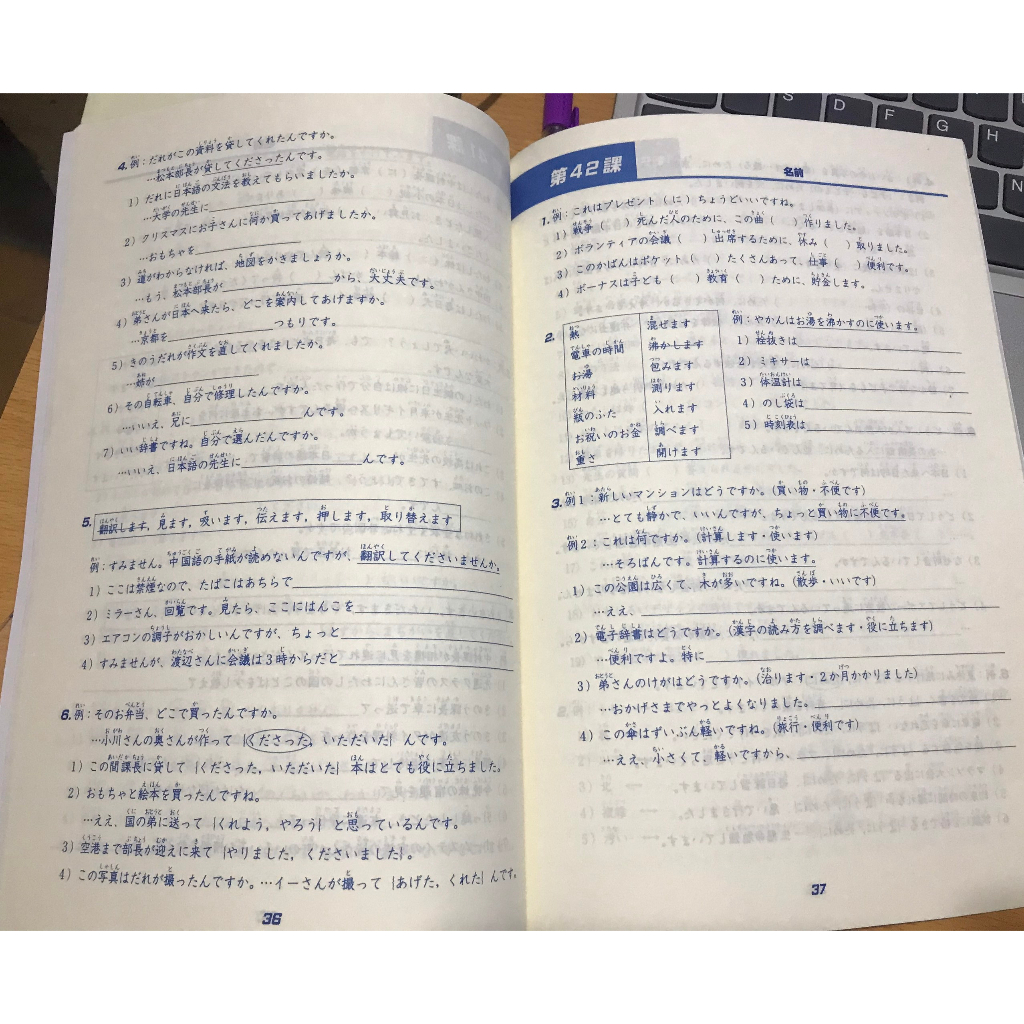 4. 例：だれがこの資料を貸してくれたんですか。
…松本部長が貸してくださったんです。
1）だれに日本語の文法を教えてもらいましたか。
…大学の先生に
2）クリスマスにお子さんに何か買ってあげましたか。
…おもちゃを
3）道がわからなければ、地図をかきましょうか。
…もう、松本部長が から、大丈夫です。
4）弟さんが日本へ来たら、どこを案内してあげますか。
…京都を つもりです。
5）きのうだれが作文を直してくれましたか。
…姉が
6）その自転車、自分で修理したんですか。
…いいえ、兄に んです。
7）いい辞書ですね。自分で選んだんですか。
…いいえ、日本語の先生に んです。
5. 翻訳します，見ます，吸います，伝えます，押します，取り替えます
例：すみません。中国語の手紙が読めないんですが、翻訳してくださいませんか。
1）ここは禁煙なので、たばこはあちらで
2）ミラーさん、回覧です。見たら、ここにはんこを
3）エアコンの調子がおかしいんですが、ちょっと
4）すみませんが、渡辺さんに会議は3時からだと
6. 例：そのお弁当、どこで買ったんですか。
…小川さんの奥さんが作って｛くださった，いただいた｝んです。
1）この間課長に貸して｛くださった，いただいた｝本はとても役に立ちました。
2）おもちゃと絵本を買ったんですね。
…ええ、国の弟に送って｛くれよう，やろう｝と思っているんです。
3）空港まで部長が迎えに来て｛やりました，くださいました｝。
4）この写真はだれが撮ったんですか。…イーさんが撮って｛あげた，くれた｝んです。
36
第42課
名前
1. 例：これはプレゼント（に）ちょうどいいですね。
1）戦争（ ）死んだ人のために、この曲（ ）作りました。
2）ボランティアの会議（ ）出席するために、休み（ ）取りました。
3）このかばんはポケット（ ）たくさんあって、仕事（ ）便利です。
4）ボーナスは子ども（ ）教育（ ）ために、貯金します。
2.
熱 混ぜます
電車の時間 沸かします
お湯 包みます
材料 測ります
瓶のふた 入れます
お祝いのお金 調べます
重さ 開けます
例：やかんはお湯を沸かすのに使います。
1）栓抜きは
2）ミキサーは
3）体温計は
4）のし袋は
5）時刻表は
3. 例1：新しいマンションはどうですか。（買い物・不便です）
…とても静かで、いいんですが、ちょっと買い物に不便です。
例2：これは何ですか。（計算します・使います）
…そろばんです。計算するのに使います。
1）この公園は広くて、木が多いですね。（散歩・いいです）
…ええ、
2）電子辞書はどうですか。（漢字の読み方を調べます・役に立ちます）
…便利ですよ。特に
3）弟さんのけがはどうですか。（治ります・2か月かかりました）
…おかげさまでやっとよくなりました。
4）この傘はずいぶん軽いですね。（旅行・便利です）
…ええ、小さくて、軽いですから、
37
S
D
F
G
H